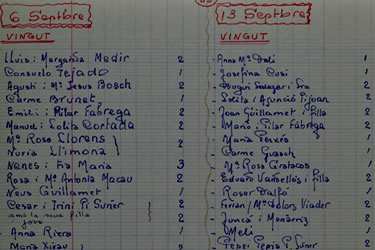 6 Septbre
VINGUT
Lluis i Margarita Medir 2
Consuelo Tejado 1
Agustí i Mª Jesus Bosch 2
Carme Brunet 1
Emili i Pilar Fàbrega 2
Manuel i Solita Cortada 2
Mª Rosa Llorens
Nuria Llimona 2
Nanes i Fra Maria 3
Rosa i Mª Antonia Macau 2
Neus Guillamet 1
Cesar i Trini Pi Sunier 2
amb la seva filla
jove 2
Anna Rivera 1
Maria Xirau
13 Septbre
VINGUT
Anna Mª Dalí 1
Josefina Cusi 1
Salazar i Sra 2
Solita i Asunció Pijoan 2
Joan Guillamet i filla 2
Mario i Pilar Fàbrega 2
Maria Perxés 1
Carme Guasch 1
Mª Rosa Gratacos 1
Eduard Vandellòs i filla 2
Roser Dalfó 1
Ferran i Mª Dolors Viader 2
Juncà i Monàrriz 2
Melí 1
Pepei Pepita P. Sunier 2